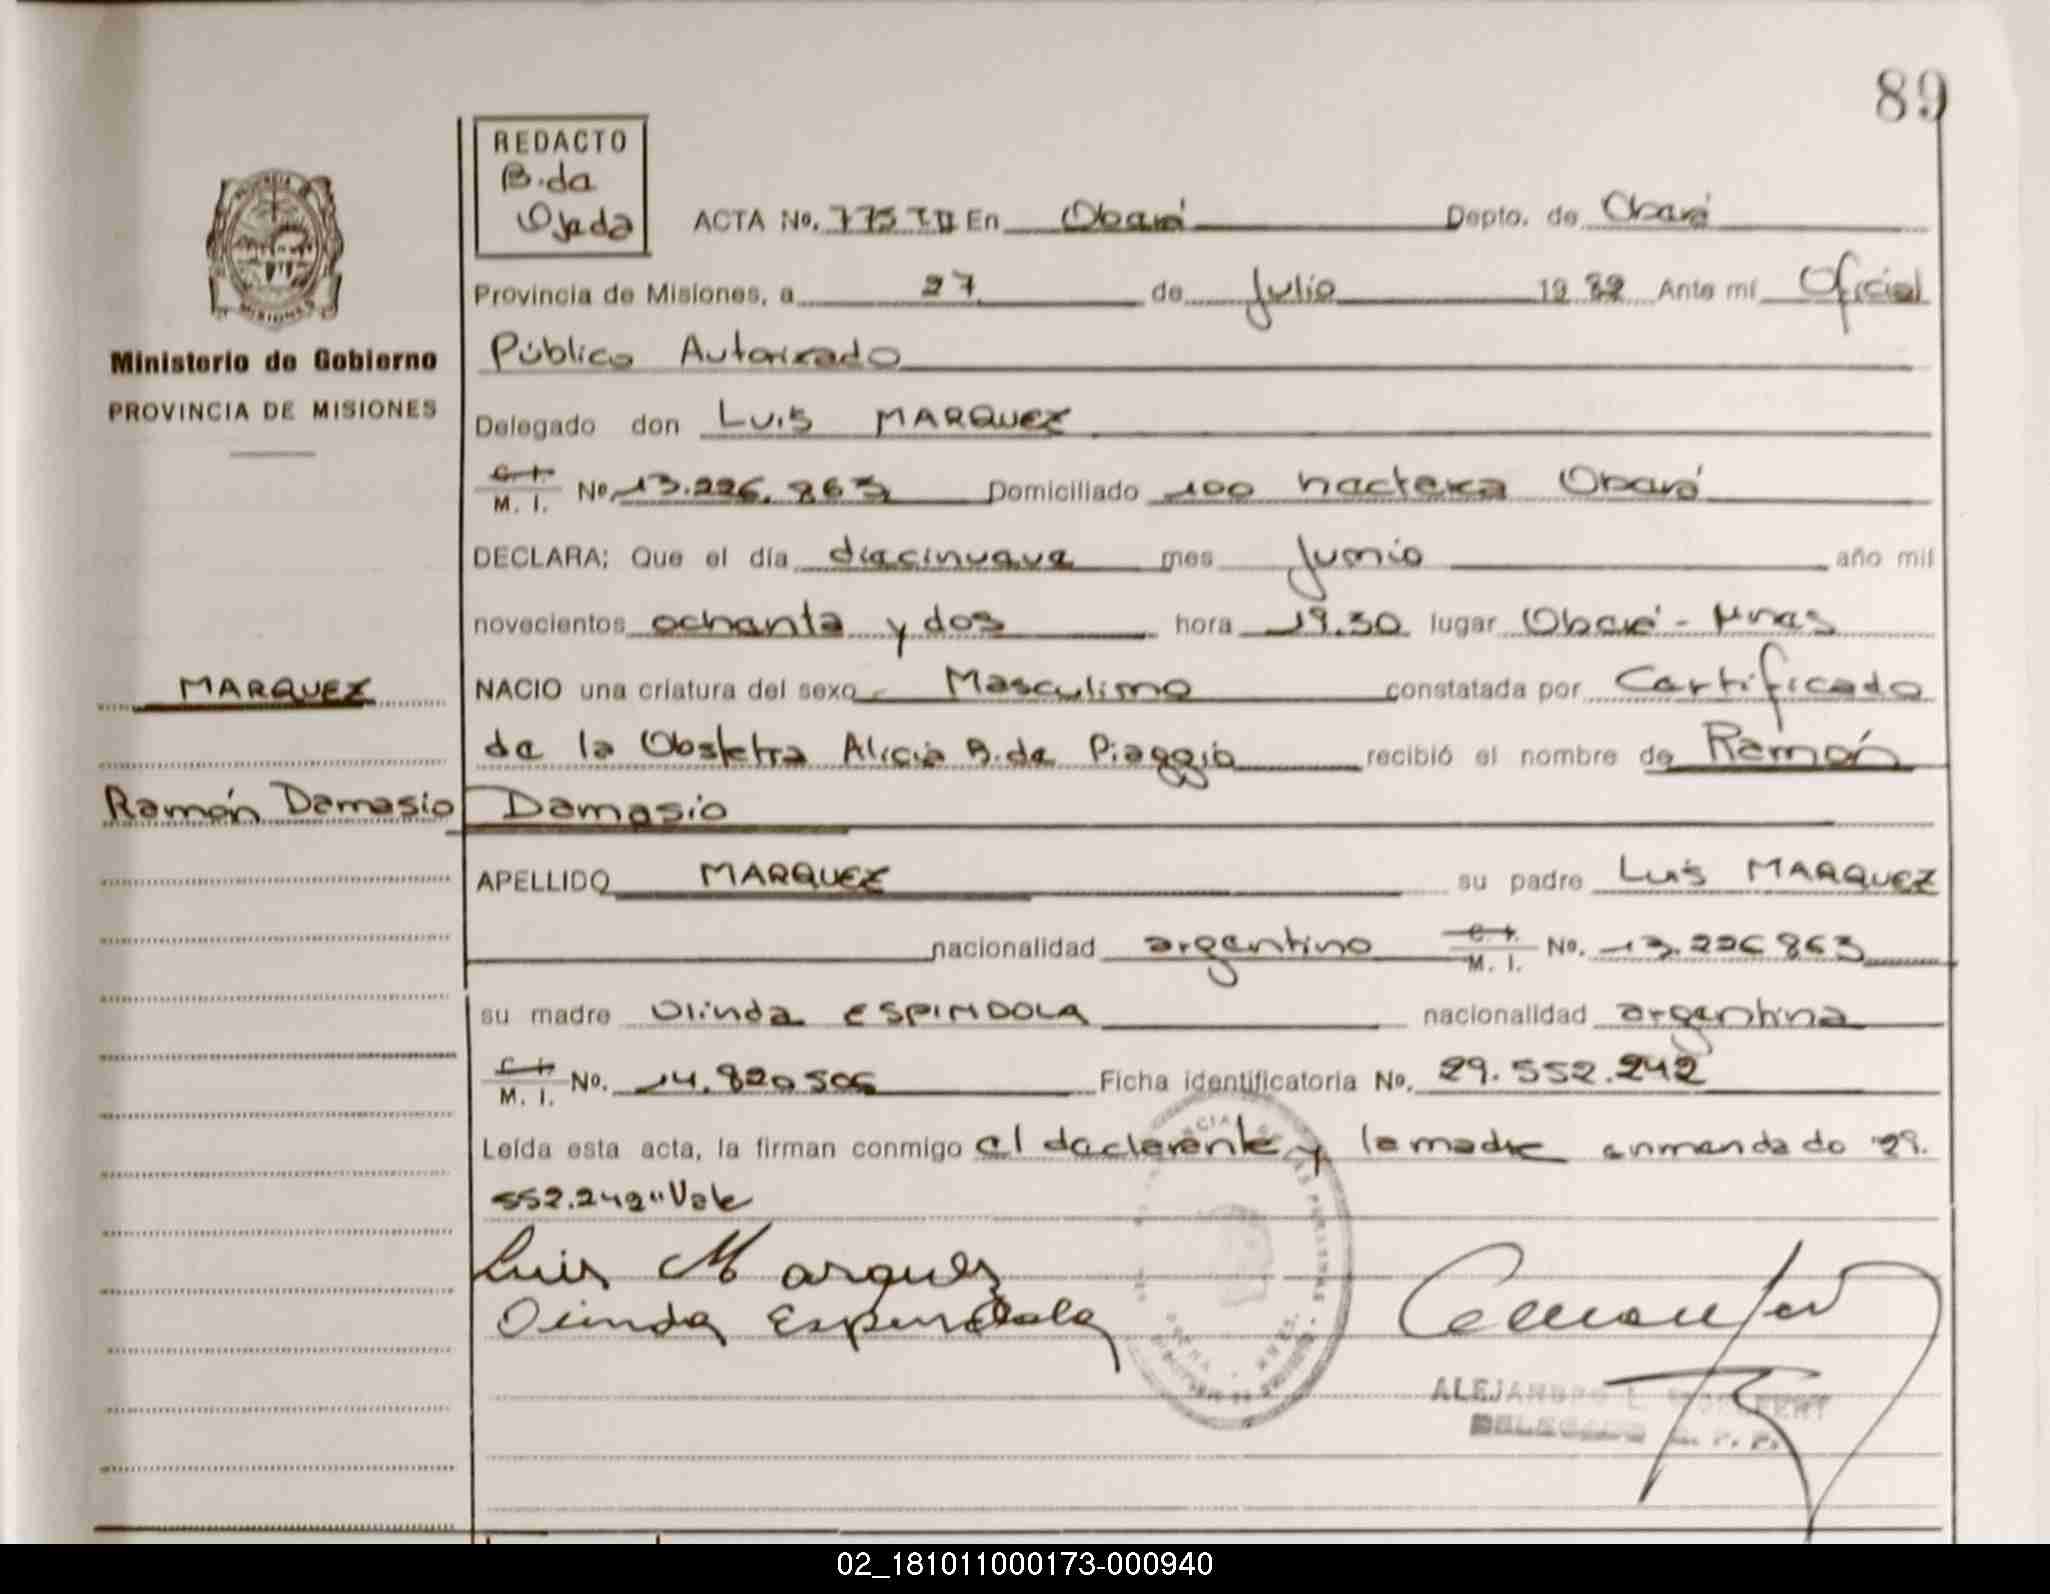 89
REDACTO
B. da
Ojeda
ACTA No. 775 T II En Oberá Depto. de Oberá
Provincia de Misiones, a 27 de Julio 1982 Ante mí Oficial
Público Autorizado
Ministerio de Gobierno
PROVINCIA DE MISIONES
Delegado don Luis MARQUEZ
C. I.
M. I. No. 13.226.863 Domiciliado 100 hactera Oberá
DECLARA; Que el día diecinueve mes Junio año mil
novecientos ochenta y dos hora 19.30 lugar Oberá - Mnes
MARQUEZ
NACIO una criatura del sexo Masculino constatada por Certificado
de la Obstetra Alicia B. de Piaggio recibió el nombre de Ramón
Ramón Damasio
Damasio
APELLIDO MARQUEZ su padre Luis MARQUEZ
nacionalidad argentino C. I.
M. I. No. 13.226863
su madre Olinda ESPINDOLA nacionalidad argentina
C. I.
M. I. No. 14.820506 Ficha identificatoria No. 29.552.242
Leída esta acta, la firman conmigo el declarente y la madre enmendado "29.
552.242" Vale
Luis Marquez
Olinda Espindola
ALEJANDRO L.
DELEGADO R. P. P.
02_181011000173-000940